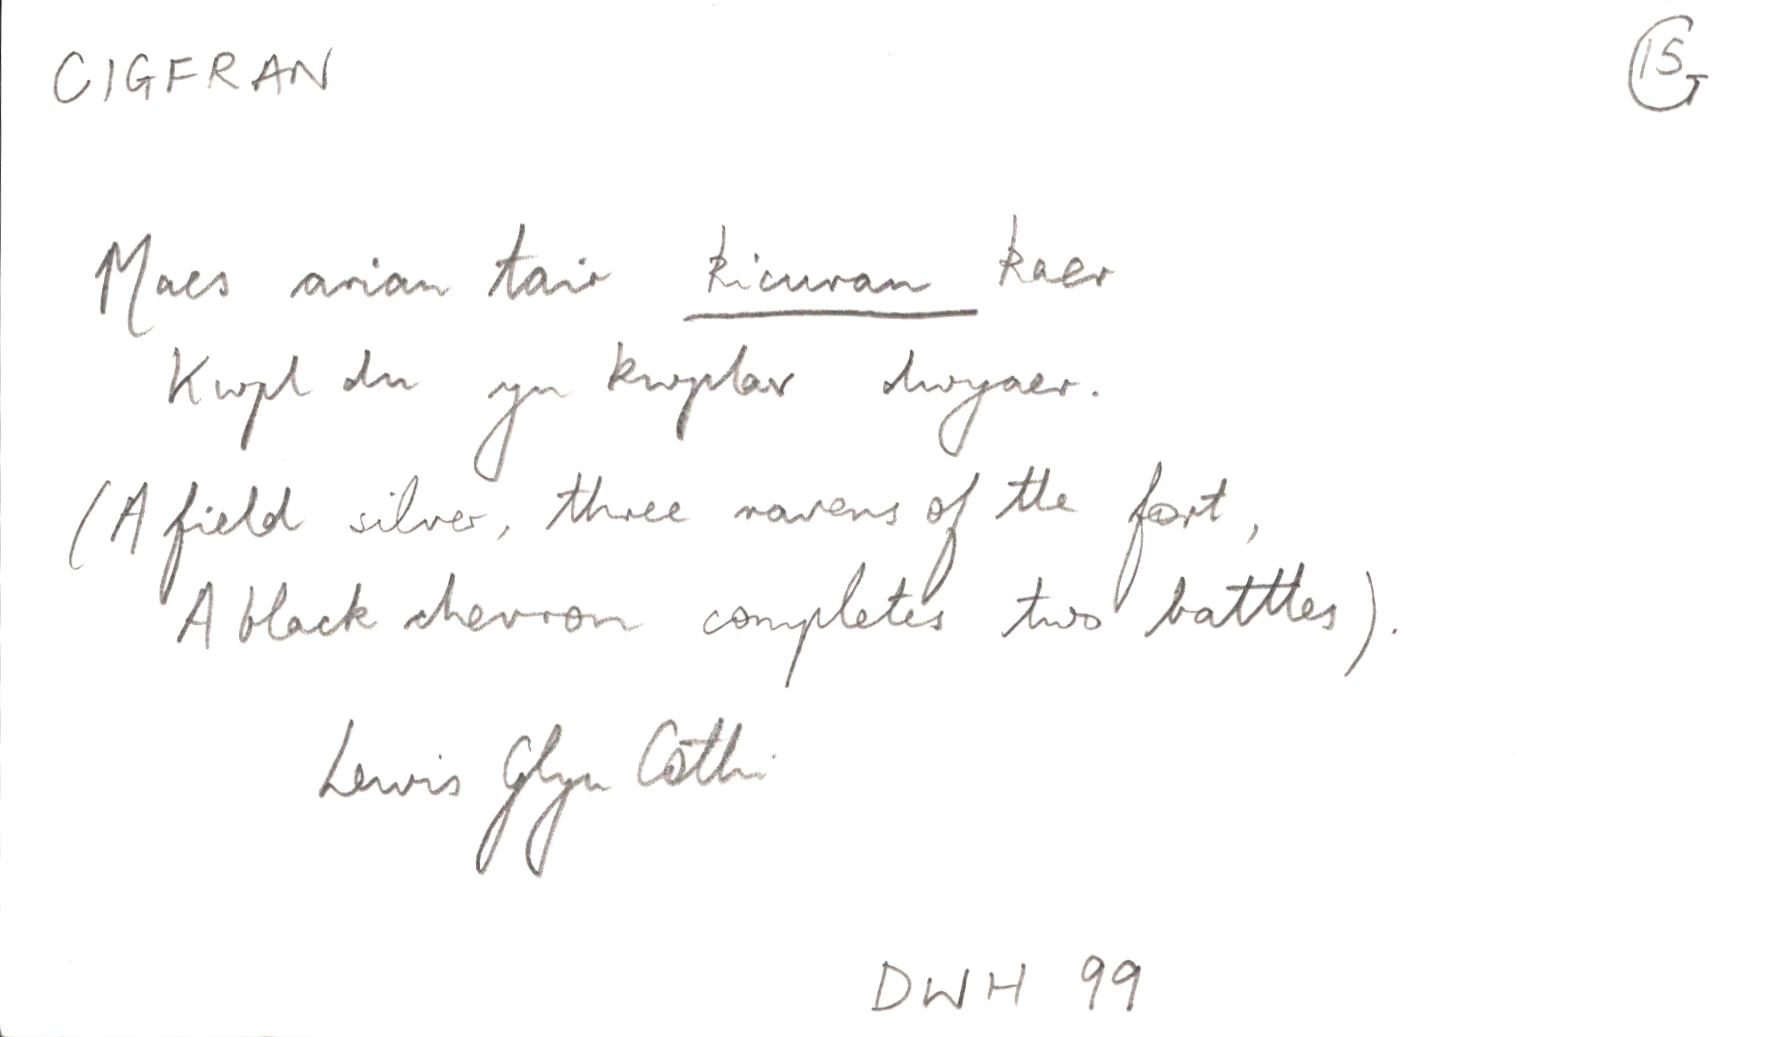 CIGFRAN
15
Maes arian tair kicuran kaer
Kwpl du yn kwplav dwyaer.
(A field silver, three ravens of the fort,
A black chevron completes two battles).
Lewis Glyn Cothi
DWH 99